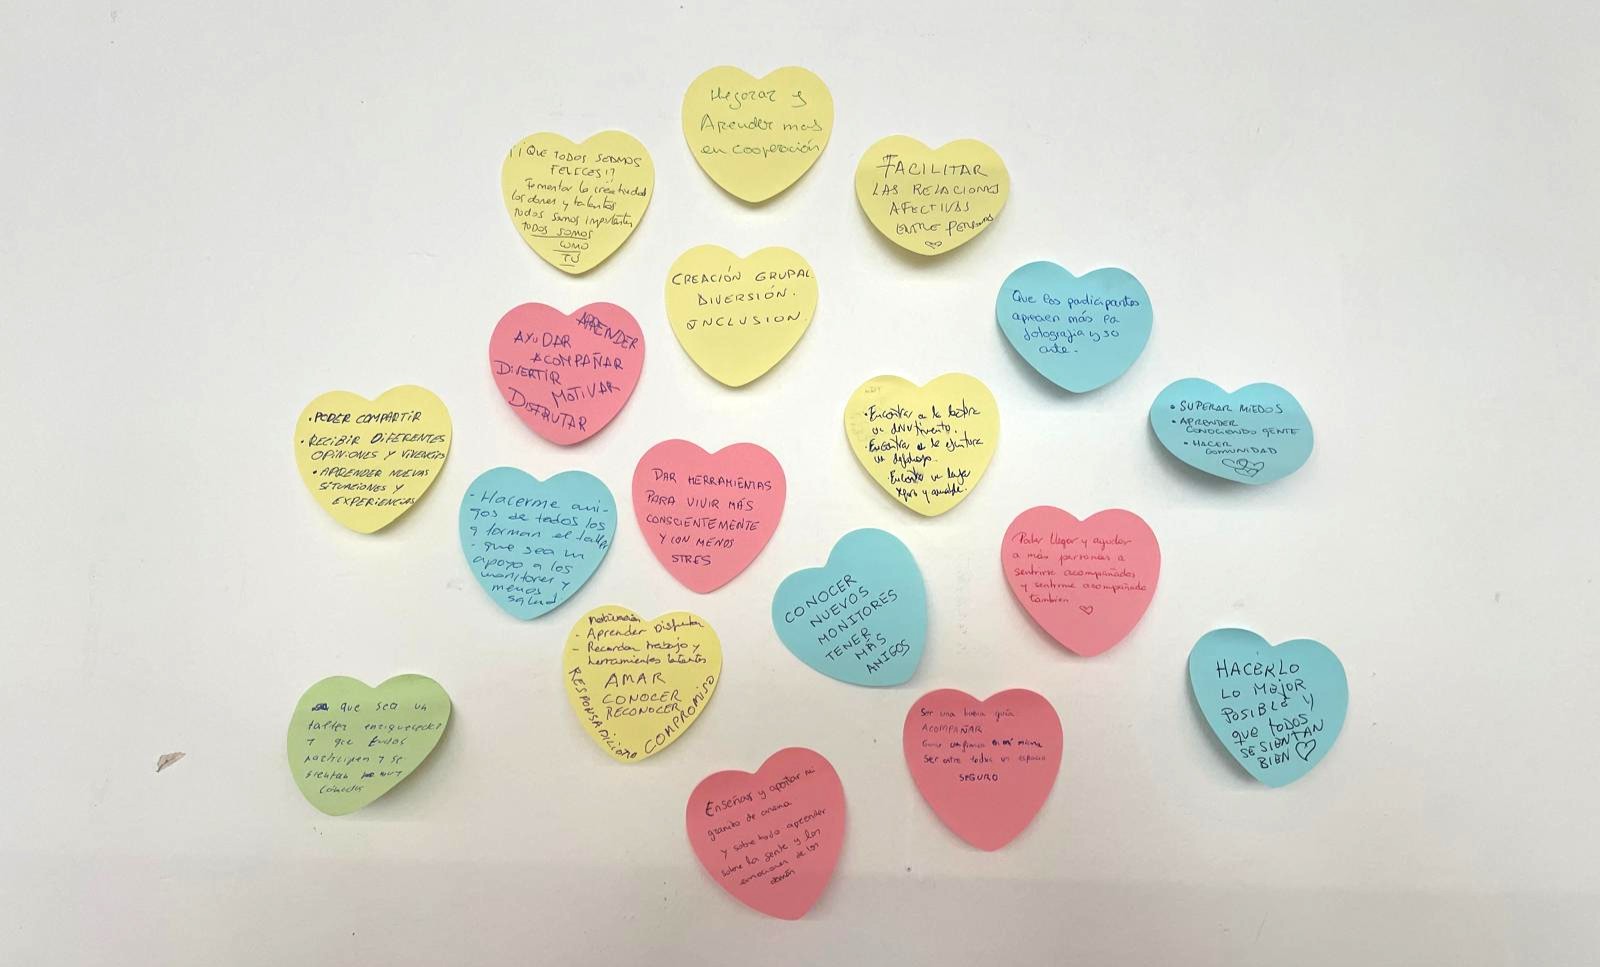 Mejorar y
Aprender mas
en cooperación
¡¡QUE TODOS SEAMOS
FELICES!!
Fomentar la creatividad
los dones y talentos
todos somos importantes
TODOS SOMOS
COMO
TÚ
FACILITAR
LAS RELACIONES
AFECTIVAS
ENTRE PERSONAS
CREACIÓN GRUPAL.
DIVERSIÓN.
INCLUSION.
Que los participantes
aprecien más la
fotografia y so
arte.
APRENDER
AYUDAR
ACOMPAÑAR
DIVERTIR
MOTIVAR
DISFRUTAR
• SUPERAR MIEDOS
• APRENDER
CONOCIENDO GENTE
• HACER
COMUNIDAD
• PODER COMPARTIR
• RECIBIR DIFERENTES
OPINIONES Y VIVENCIAS
• APRENDER NUEVAS
SITUACIONES Y
EXPERIENCIAS
• Encontrar a la
un divertimento.
• Encontrar a la
un
Encontrar un lugar
y amable.
DAR HERRAMIENTAS
PARA VIVIR MÁS
CONSCIENTEMENTE
Y CON MENOS
STRES
- Hacerme ami-
gos de todos los
q forman el taller
- que sea un
apoyo a los
monitores y
menos
salud.
Poder llegar y ayudar
a más personas a
sentirse acompañados
y sentirme acompañada
también.
CONOCER
NUEVOS
MONITORES
TENER
MÁS
AMIGOS
Motivación
- Aprender Disfrutar
- Recordar trabajo y
herramientas latentes
AMAR
CONOCER
RECONOCER
RESPONSABILIDAD
COMPROMISO
HACERLO
LO MEJOR
POSIBLE Y
que todos
SE SIENTAN
BIEN
que sea un
taller enriquecedor
y que todos
participen y se
sientan muy
cómodos
Ser una buena guía
ACOMPAÑAR
Ganar confianza en mí misma
Ser entre todos un espacio
SEGURO
Enseñar y aportar mi
granito de arena
y sobre todo aprender
sobre la gente y las
emociones de los
demás